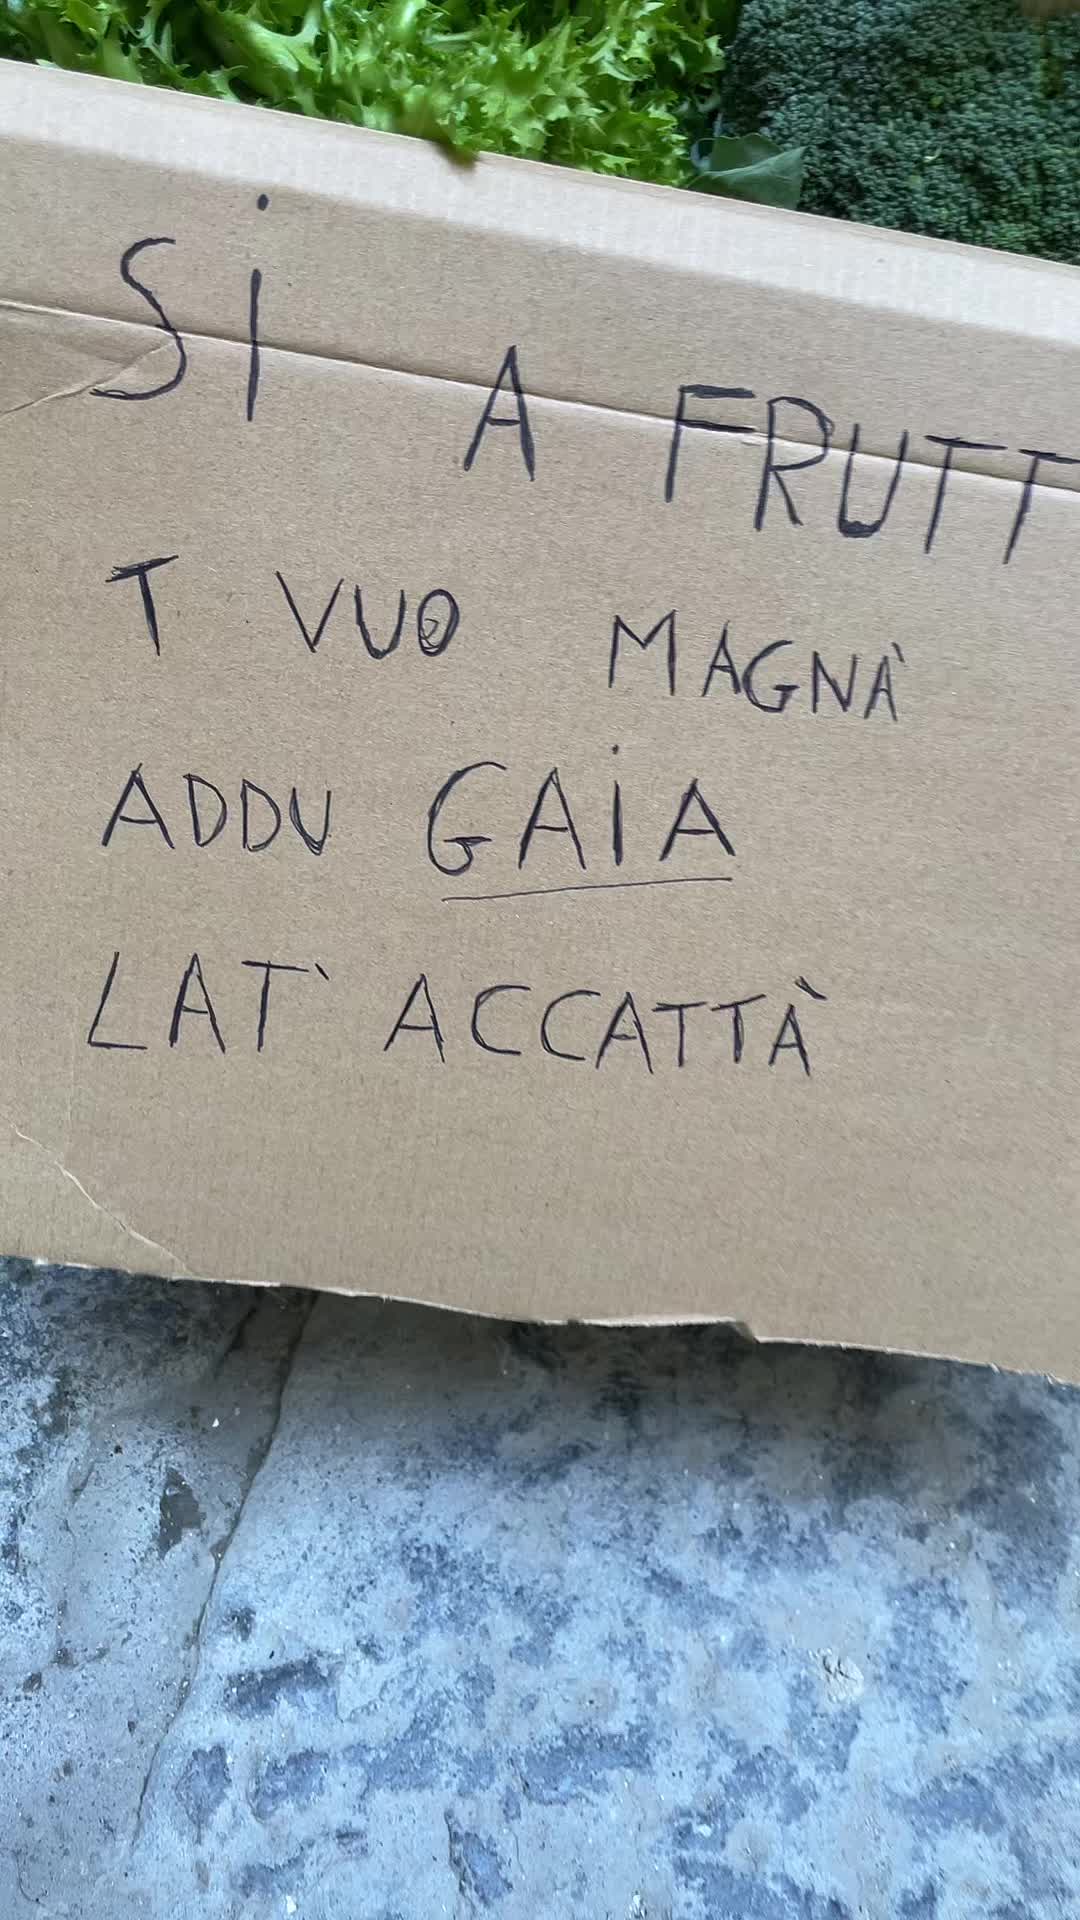 Si A FRUTT
T VUO MAGNÀ
ADDU GAiA
LAT' ACCATTÀ